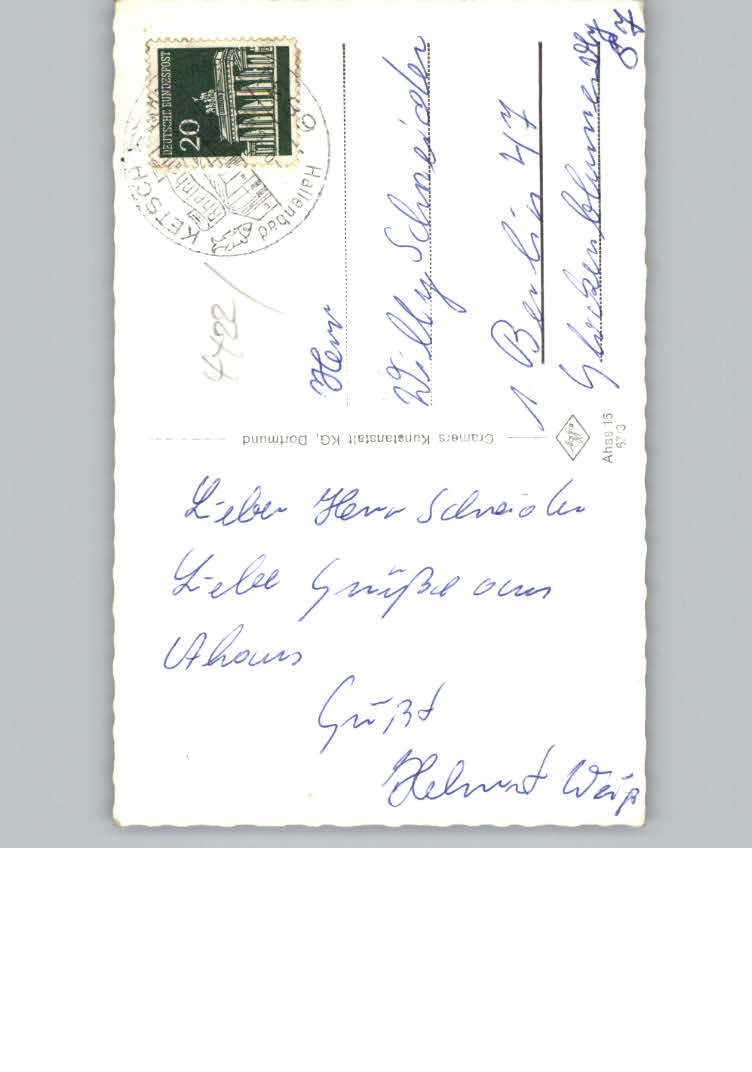 Lieber Herr Schneider
Liebe Grüße aus
Ahaus
Grüßt
Helmut Weiß
Herr
Willy Schneider
1 Berlin 47
Glockenblumenweg
87
4422
DEUTSCHE BUNDESPOST
20
KETSCH
Hallenbad
Cramers Kunstanstalt KG, Dortmund
Ahas 15
67/3